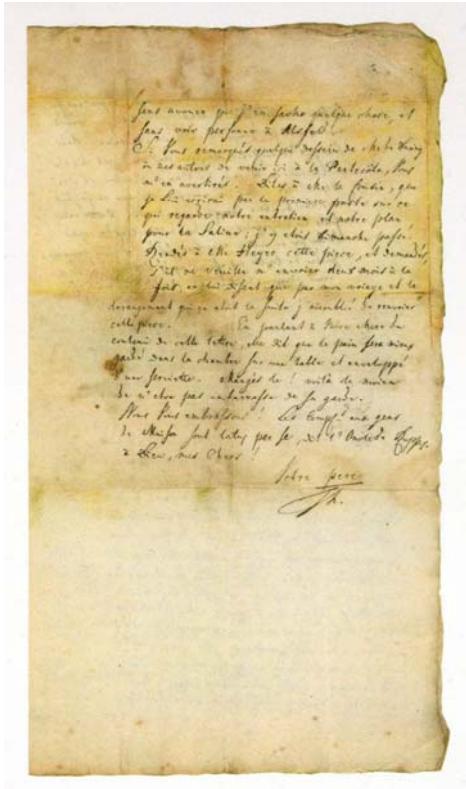 sans avance que j'en sache quelque chose, et
sans voir personne à Alsfeld.
Si Vous remarqués quelque dessein de
ou des autres de venir ici à la Pentecôte, Vous
m'en avertirés. Dites à Mr le que
je lui par la premiere poste sur ce
qui regarde notre entretien et notre plan
pour la Saline; j'y étois Dimanche passé.
Rendés à Mr cette piece, et demandés
s'il ne m'envoier deux mois à la
fois en lui disant que par mon voiage et le
derangement qui en étoit la suite j'
cette piece. En parlant à chere du
contenu de cette lettre, elle dit que le pain sera mieux
gardé dans la chambre sur une table et enveloppé
d'une serviette. Mangés le! voilà le moien
de n'etre pas embarrassé de sa garde.
Nous Vous embrassons! Les aux gens
de Maison sont
à Dieu, mes chers!
Votre pere